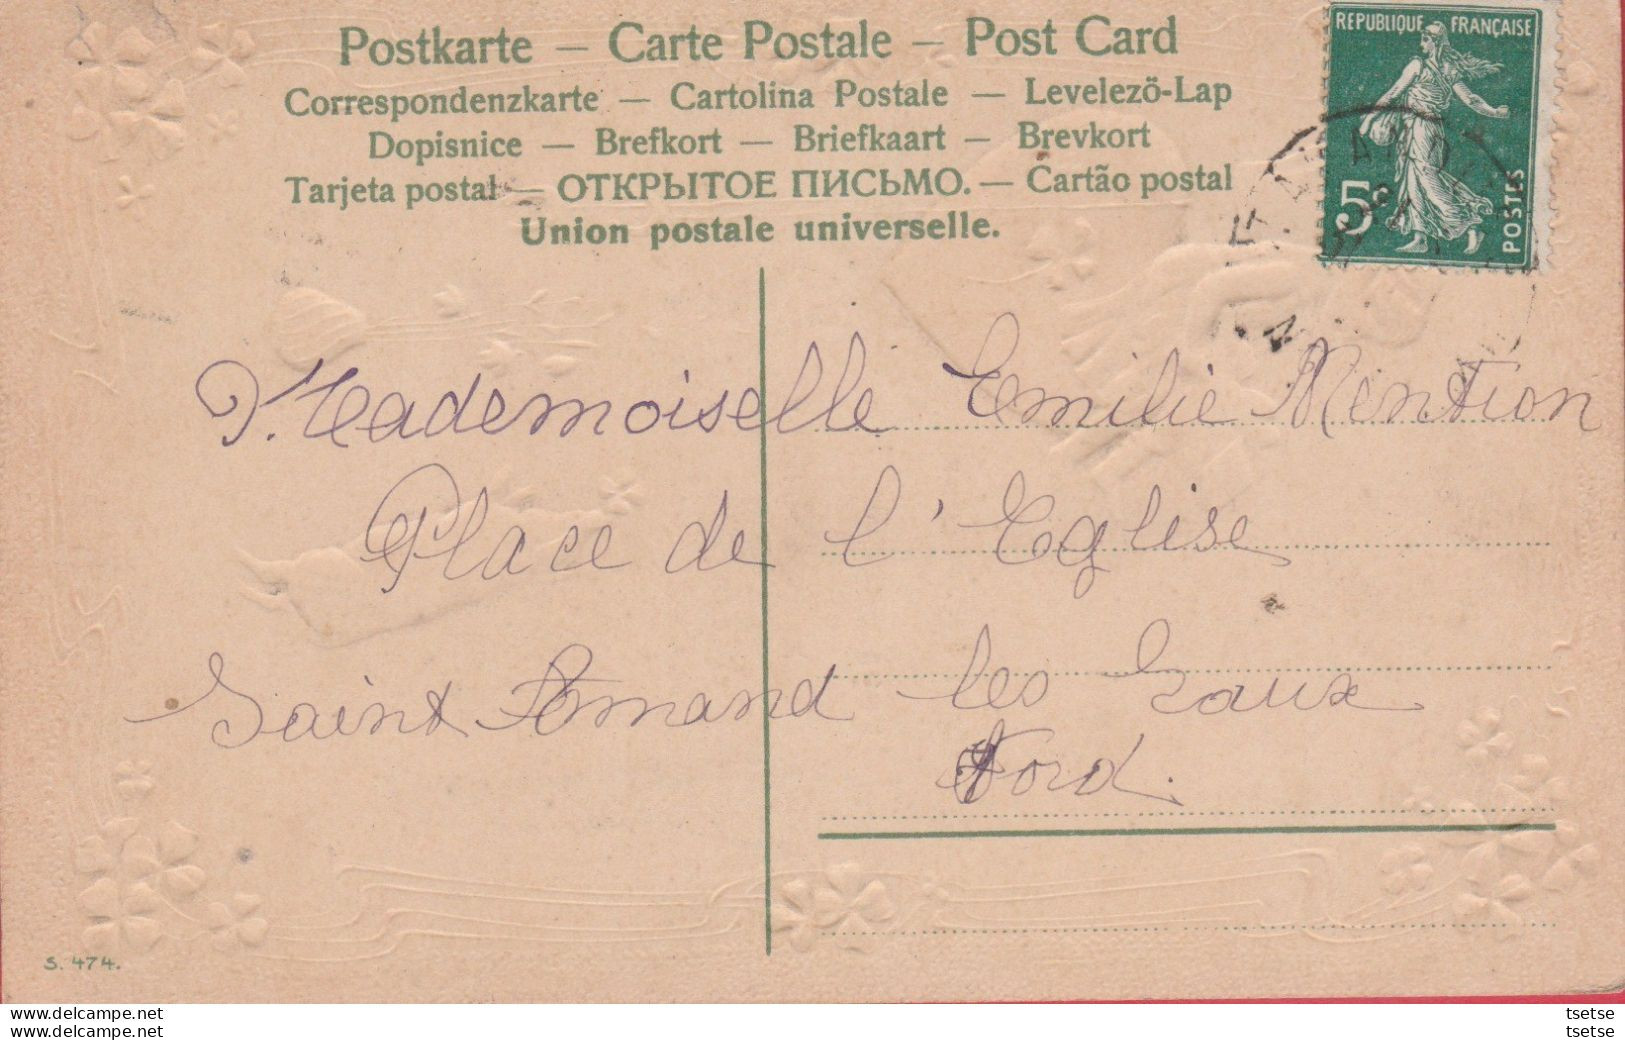 Postkarte — Carte Postale — Post Card
Correspondenzkarte — Cartolina Postale — Levelezö-Lap
Dopisnice — Brefkort — Briefkaart — Brevkort
Tarjeta postal — ОТКРЫТОЕ ПИСЬМО. — Cartão postal
Union postale universelle.
REPUBLIQUE FRANÇAISE
5c
POSTES
Mademoiselle Emilie Mention
Place de l'Eglise
Saint Amand les Eaux
Nord.
S. 474.
www.delcampe.net
tsetse
www.delcampe.net
tsetse